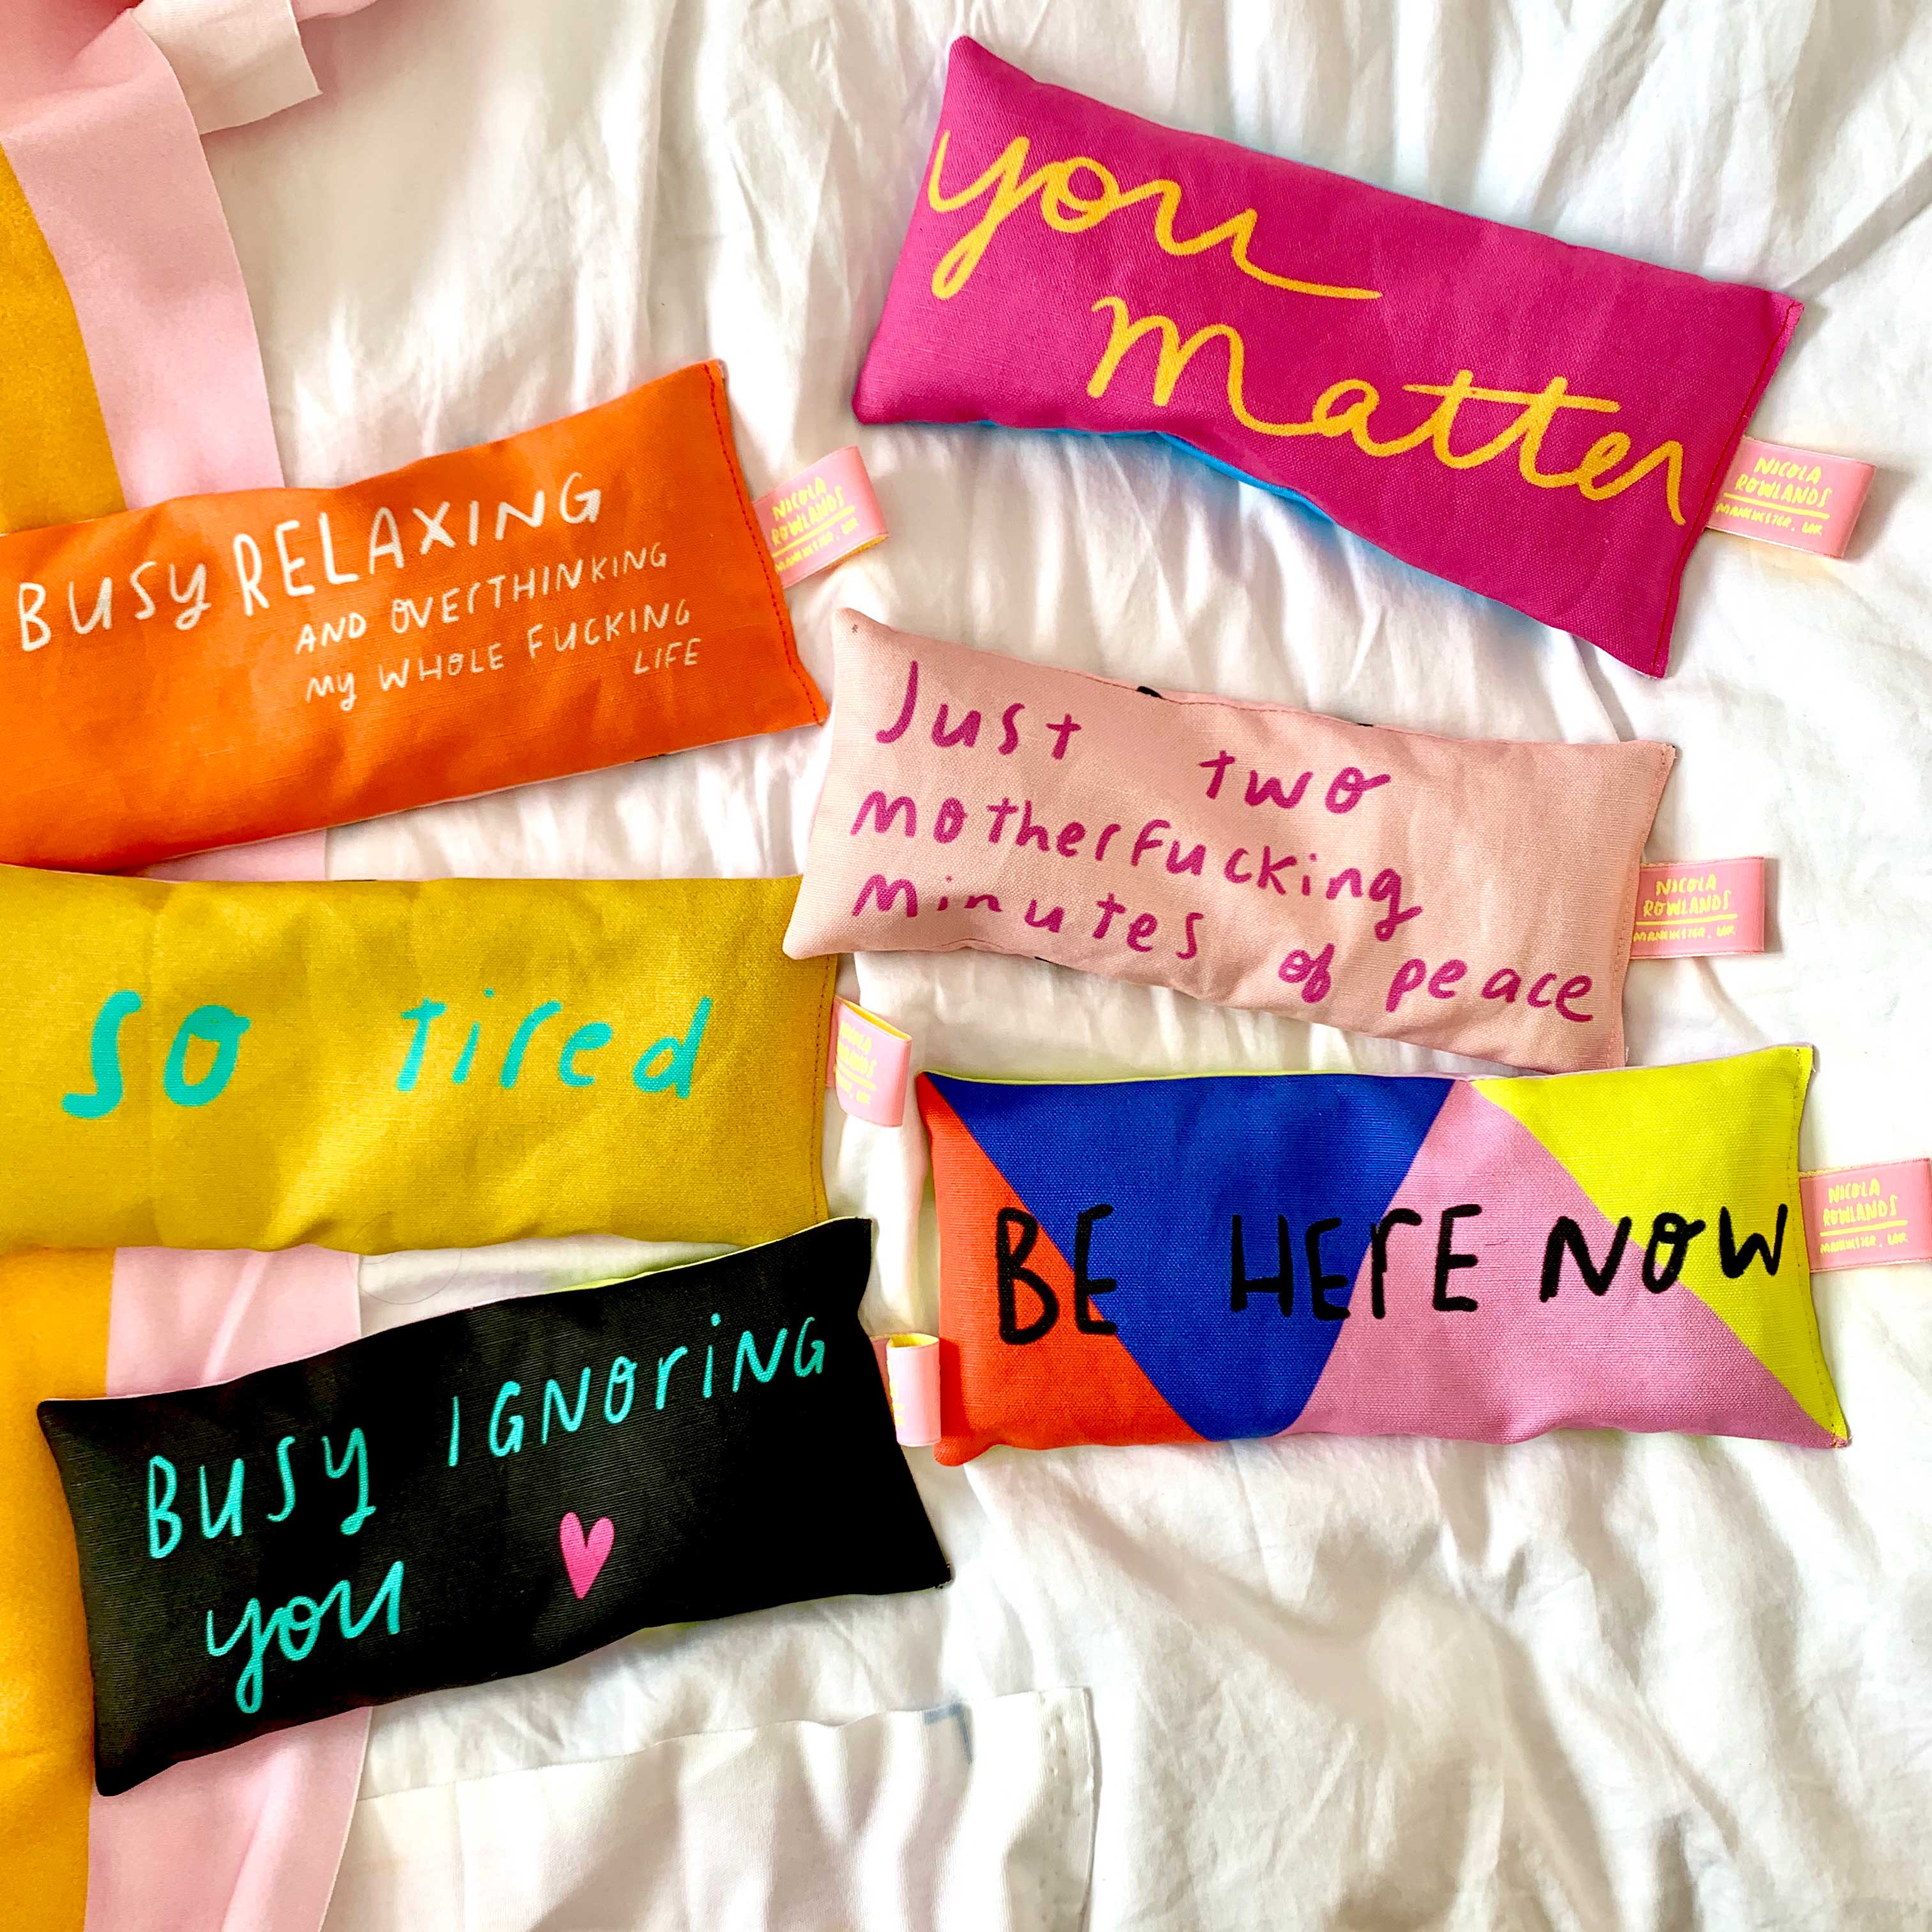 you
matter
NICOLA
ROWLANDS
MANCHESTER, UK
BUSY RELAXING
AND OVERTHINKING
MY WHOLE FUCKING
LIFE
NICOLA
ROWLANDS
MANCHESTER, UK
Just two
motherfucking
minutes of peace
NICOLA
ROWLANDS
MANCHESTER, UK
so tired
NICOLA
ROWLANDS
BE HERE NOW
NICOLA
ROWLANDS
MANCHESTER, UK
BUSY IGNORING
you